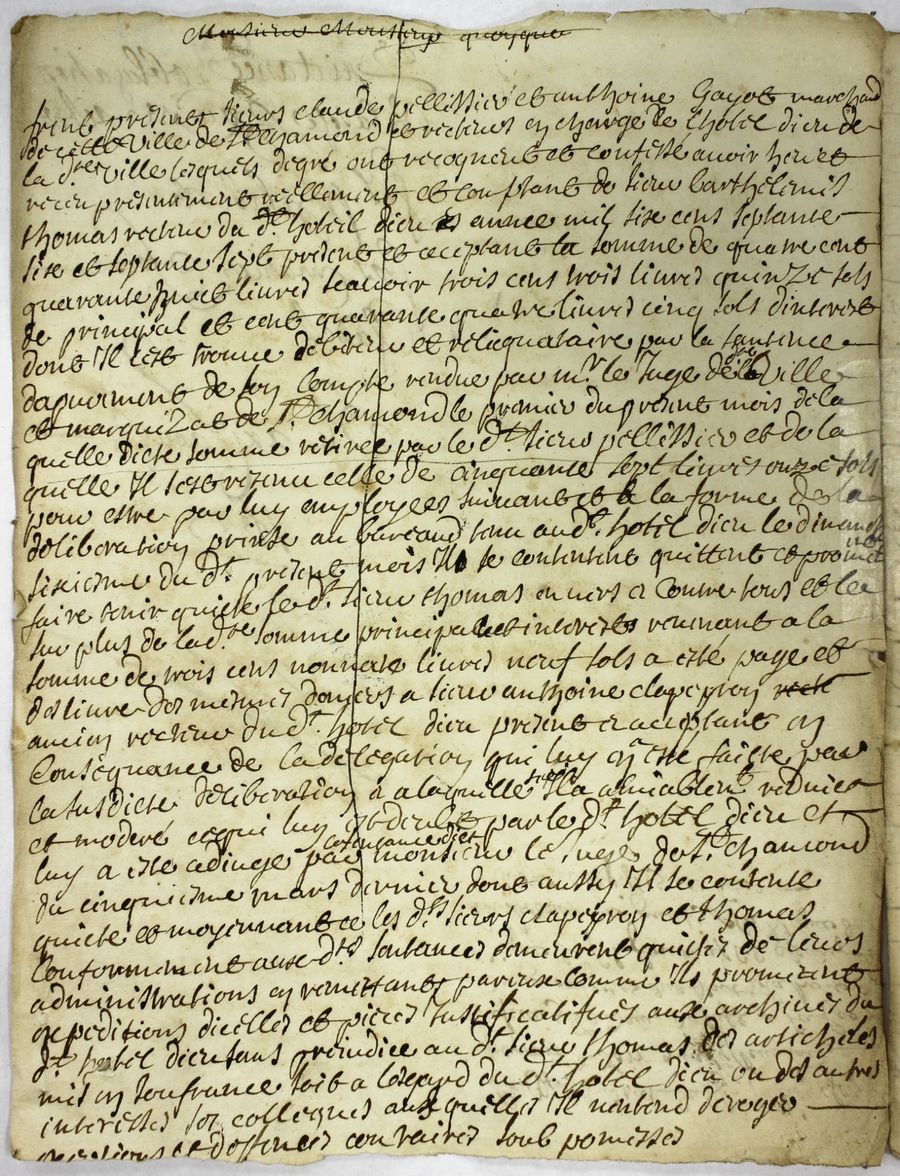 quoyque
furent presents sieurs claude pellissier et anthoine Gayot marchand
de cette ville de St chamond et recteurs en charge de lhotel dieu de
la dte ville lesquels de gré ont recogneut et confessé avoir heu et
receu presentement reellement et comptant de sieur barthelemis
thomas recteur du dt hoteil dieu es année mil sixe cens septante
sixe et septante sept present et aceptant la somme de quatre cent
quarante huict livres scavoir trois cens trois livres quinze sols
de principal et cent quarante quatre livres cinq sols dinterest
dont Il cest trouvé debiteur et reliquataire par la santence
dapurement de son compte rendue par mr le Juge de la dte ville
et marquizat de St chamond le premier du present mois de la
quelle dicte somme retirée par le dt sieur pellissier et de la
quelle Il sest retenu celle de cinquante sept livres onze sols
pour estre par luy employées suivant et a la forme de la
deliberation prinse au bureaud tenu au dt hotel dieu le dimanche
sixiesme du dt present mois Ils se contentent quittent et promettent
faire tenir quicte le dt sieur thomas envers et contre tous et le
sur plus de la dte somme principale et interests revenant a la
somme de trois cens nonnate livres neuf sols a esté payé et
deslivré des mesmes deniers a sieur anthoine clapeyron
ancien recteur du dt hotel dieu present et acceptant en
Consequance de la delegation qui luy en esté faicte par
la susdicte deliberation a laquelle Il a amiablemt reduict
et moderé ce qui luy est deubt par le dt hotel dieu et
luy a esté adjugé par la sentance de monsieur le juge de St chamond
du cinquiesme mars dernier dont aussy Il se contente
quicte et moyennant ce les dts sieurs clapeyron et thomas
Conformement aux dtes santances demeurent quictes de leurs
administrations en remettant par eux comme Ils promettent
expeditions dicelles et pieces Justificatifues aux archives du
dt hotel dieu sans prejudice au dt sieur thomas des articheles
mis en soufrance soit a legard du dt hotel dieu ou des autres
interessés ses collegues auxquelles Il nentend deroger
exceptions et deffences contraires soub promesses